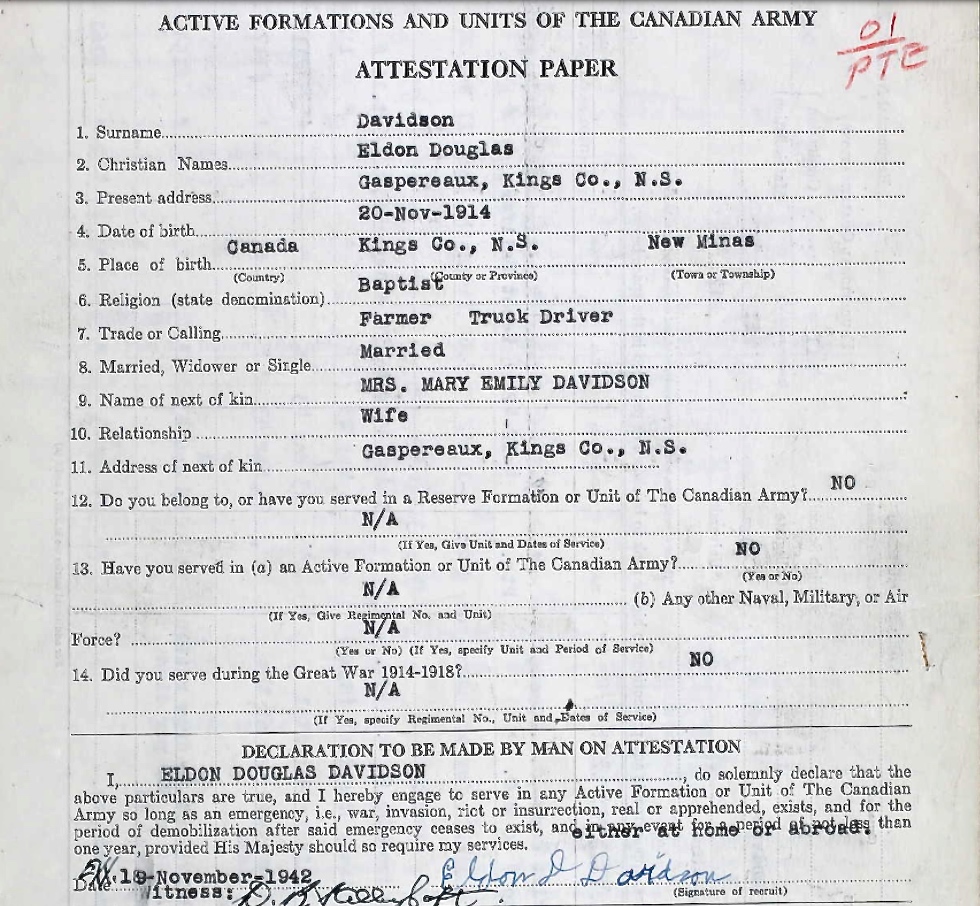 ACTIVE FORMATIONS AND UNITS OF THE CANADIAN ARMY
01
PTE
ATTESTATION PAPER
1. Surname Davidson
2. Christian Names Eldon Douglas
3. Present address Gaspereaux, Kings Co., N.S.
4. Date of birth 20-Nov-1914
5. Place of birth Canada Kings Co., N.S. New Minas
(Country) (County or Province) (Town or Township)
6. Religion (state denomination) Baptist
7. Trade or Calling Farmer Truck Driver
8. Married, Widower or Single Married
9. Name of next of kin MRS. MARY EMILY DAVIDSON
10. Relationship Wife
11. Address of next of kin Gaspereaux, Kings Co., N.S.
12. Do you belong to, or have you served in a Reserve Formation or Unit of The Canadian Army? NO
N/A
(If Yes, Give Unit and Dates of Service)
13. Have you served in (a) an Active Formation or Unit of The Canadian Army? NO
(Yes or No)
N/A (b) Any other Naval, Military, or Air
(If Yes, Give Regimental No. and Unit)
Force? N/A
(Yes or No) (If Yes, specify Unit and Period of Service)
14. Did you serve during the Great War 1914-1918? NO
N/A
(If Yes, specify Regimental No., Unit and Dates of Service)
DECLARATION TO BE MADE BY MAN ON ATTESTATION
I, ELDON DOUGLAS DAVIDSON, do solemnly declare that the
above particulars are true, and I hereby engage to serve in any Active Formation or Unit of The Canadian
Army so long as an emergency, i.e., war, invasion, riot or insurrection, real or apprehended, exists, and for the
period of demobilization after said emergency ceases to exist, and in any event for a period of not less than
either at home or abroad.
one year, provided His Majesty should so require my services.
Date 19-November-1942 Eldon D Davidson
Witness: (Signature of recruit)